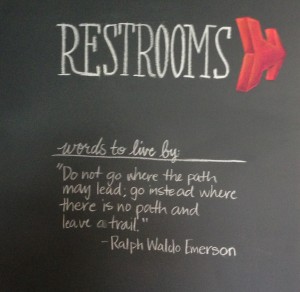 RESTROOMS
words to live by:
"Do not go where the path
may lead; go instead where
there is no path and
leave a trail."
-Ralph Waldo Emerson